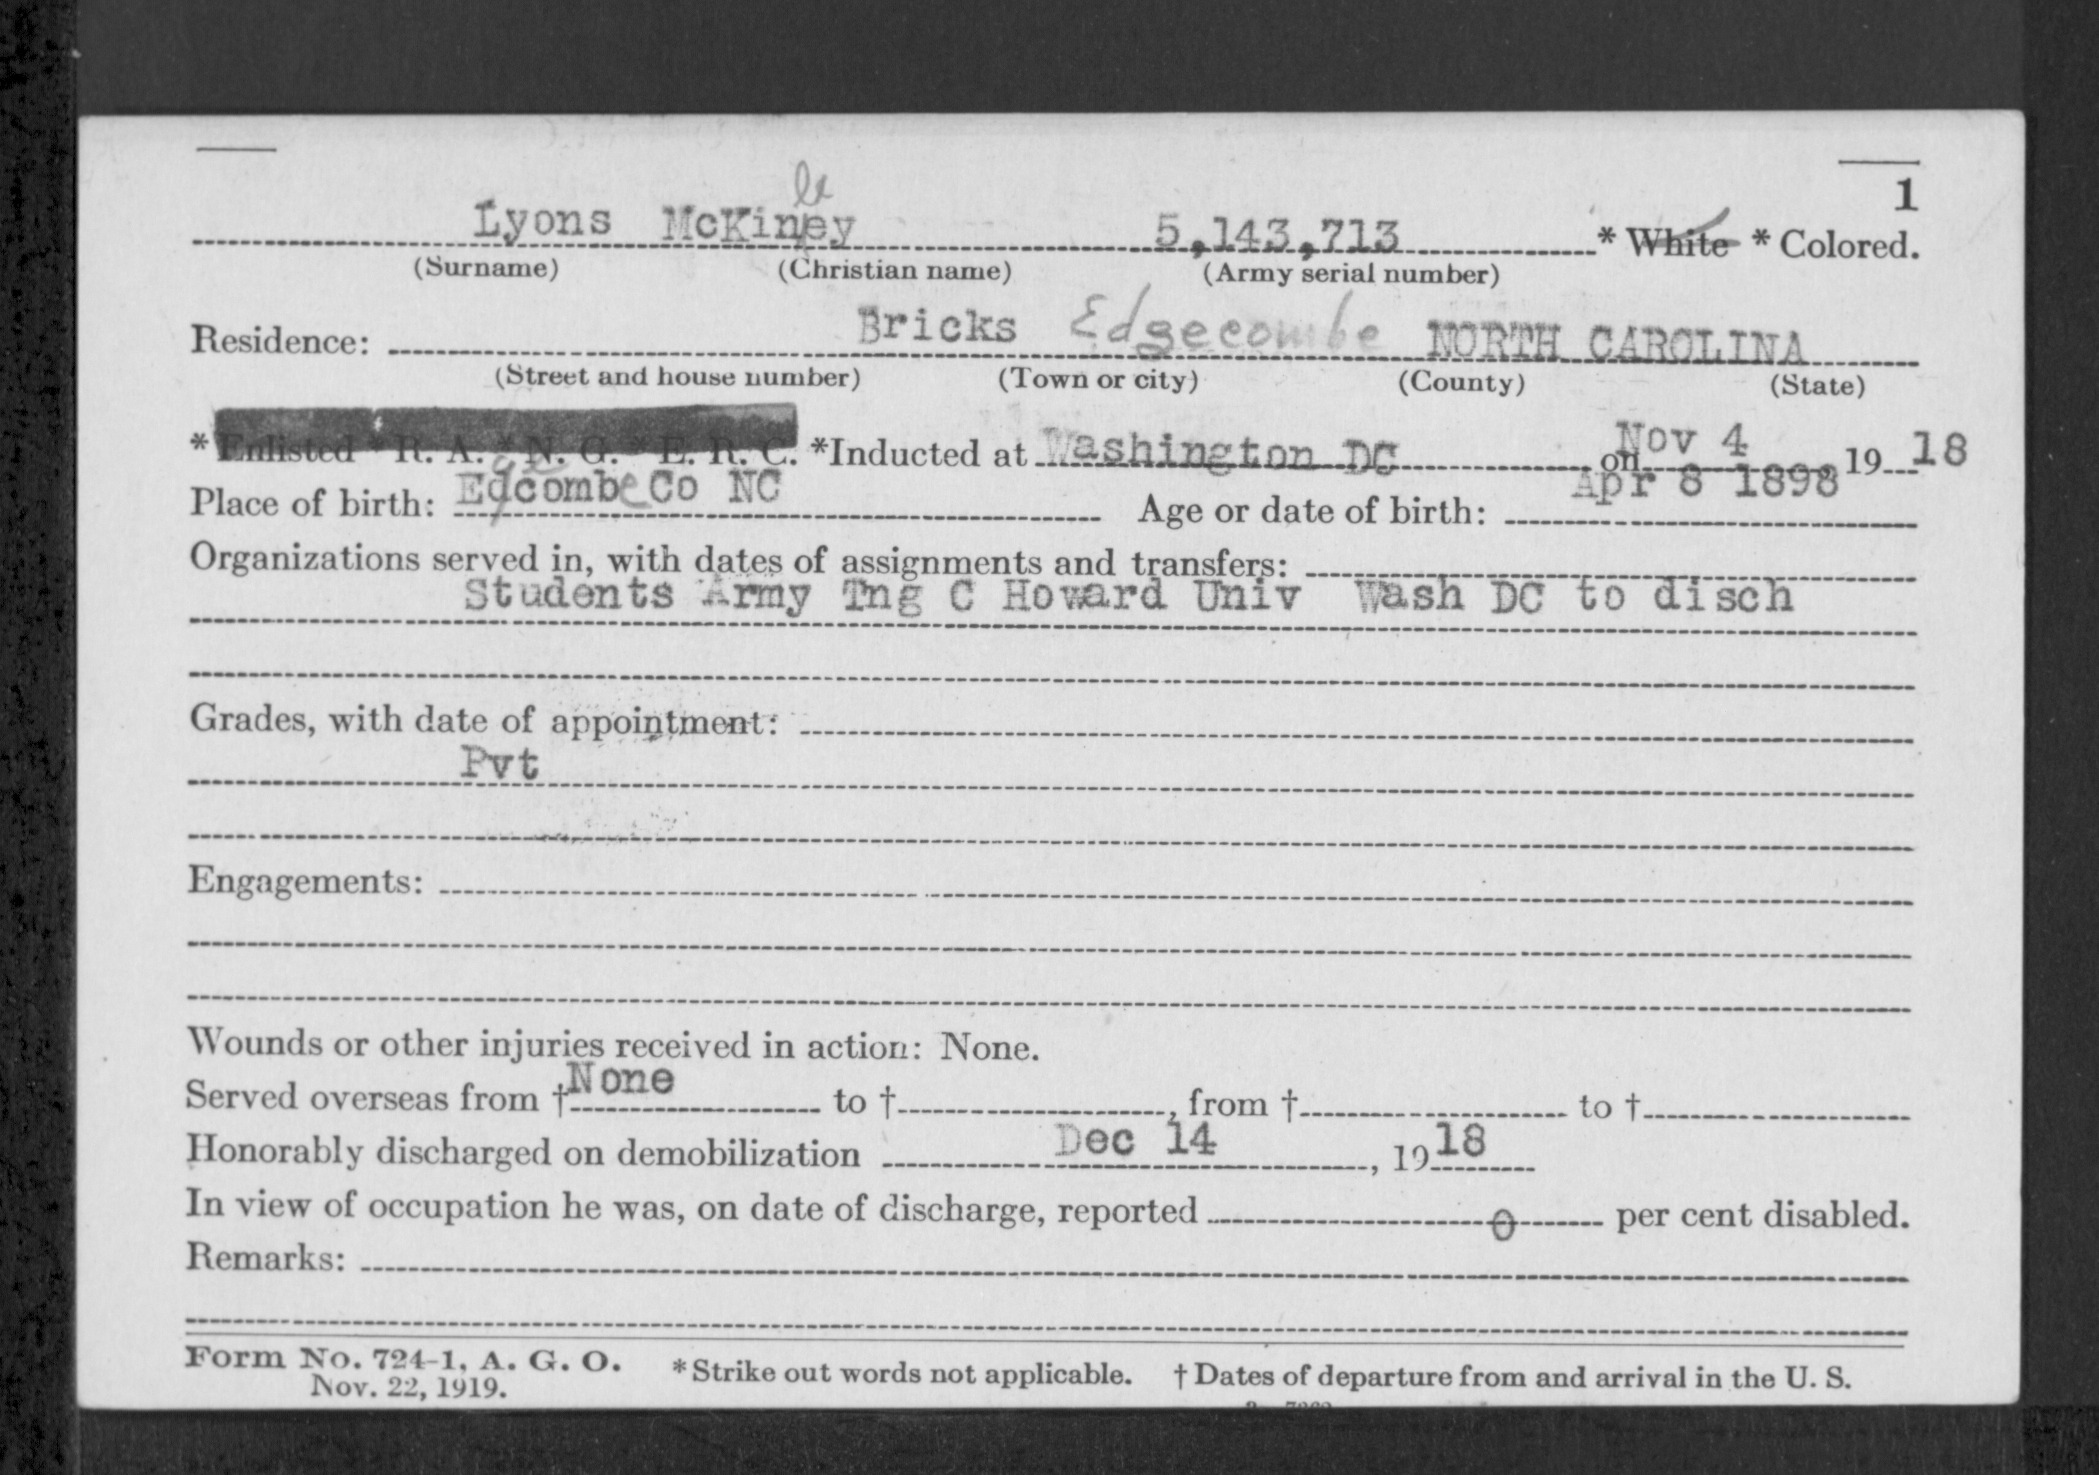 1
le
Lyons McKinney 5,143,713 * White * Colored.
(Surname) (Christian name) (Army serial number)
Residence: Bricks Edgecombe NORTH CAROLINA
(Street and house number) (Town or city) (County) (State)
* Enlisted * R. A. * N. G. * E. R. C. *Inducted at Washington DC on Nov 4, 1918
Place of birth: Edgecombe Co NC Age or date of birth: Apr 8 1898
Organizations served in, with dates of assignments and transfers:
Students Army Tng C Howard Univ Wash DC to disch
Grades, with date of appointment:
Pvt
Engagements:
Wounds or other injuries received in action: None.
Served overseas from † None to †, from † to †
Honorably discharged on demobilization Dec 14, 1918
In view of occupation he was, on date of discharge, reported 0 per cent disabled.
Remarks:
Form No. 724-1, A. G. O. *Strike out words not applicable. † Dates of departure from and arrival in the U. S.
Nov. 22, 1919.